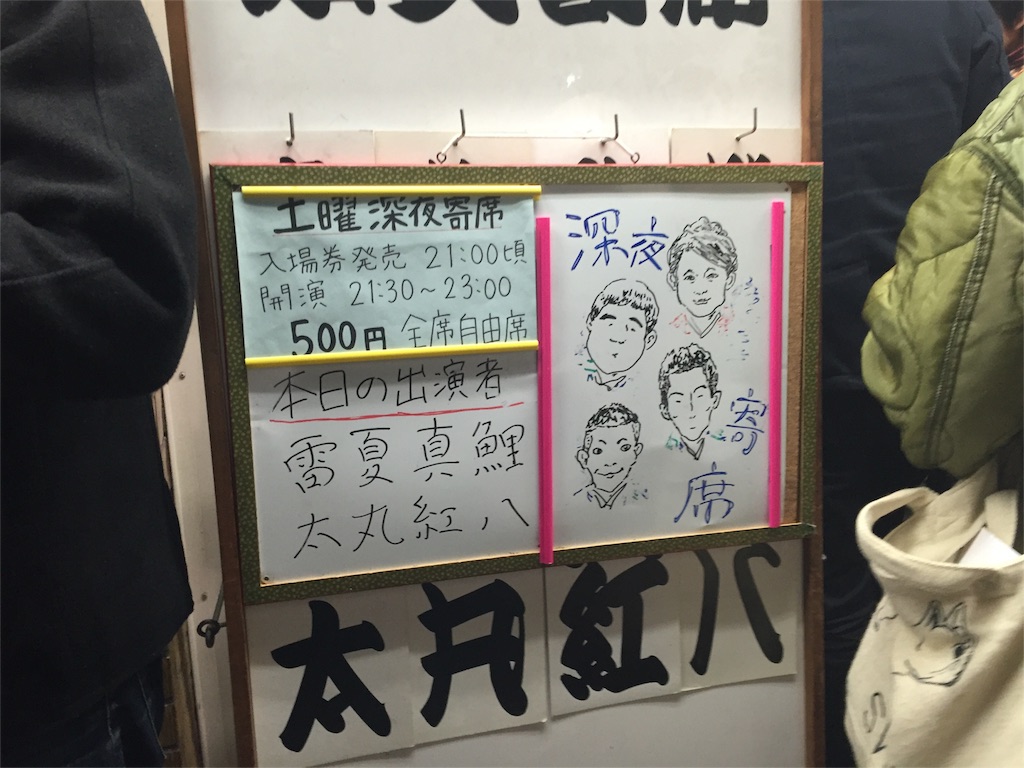 土曜深夜寄席
入場券発売 21:00頃
開演 21:30~23:00
500円 全席自由席
本日の出演者
雷夏真鯉
太丸紅八
深夜
寄
席
太丸紅八